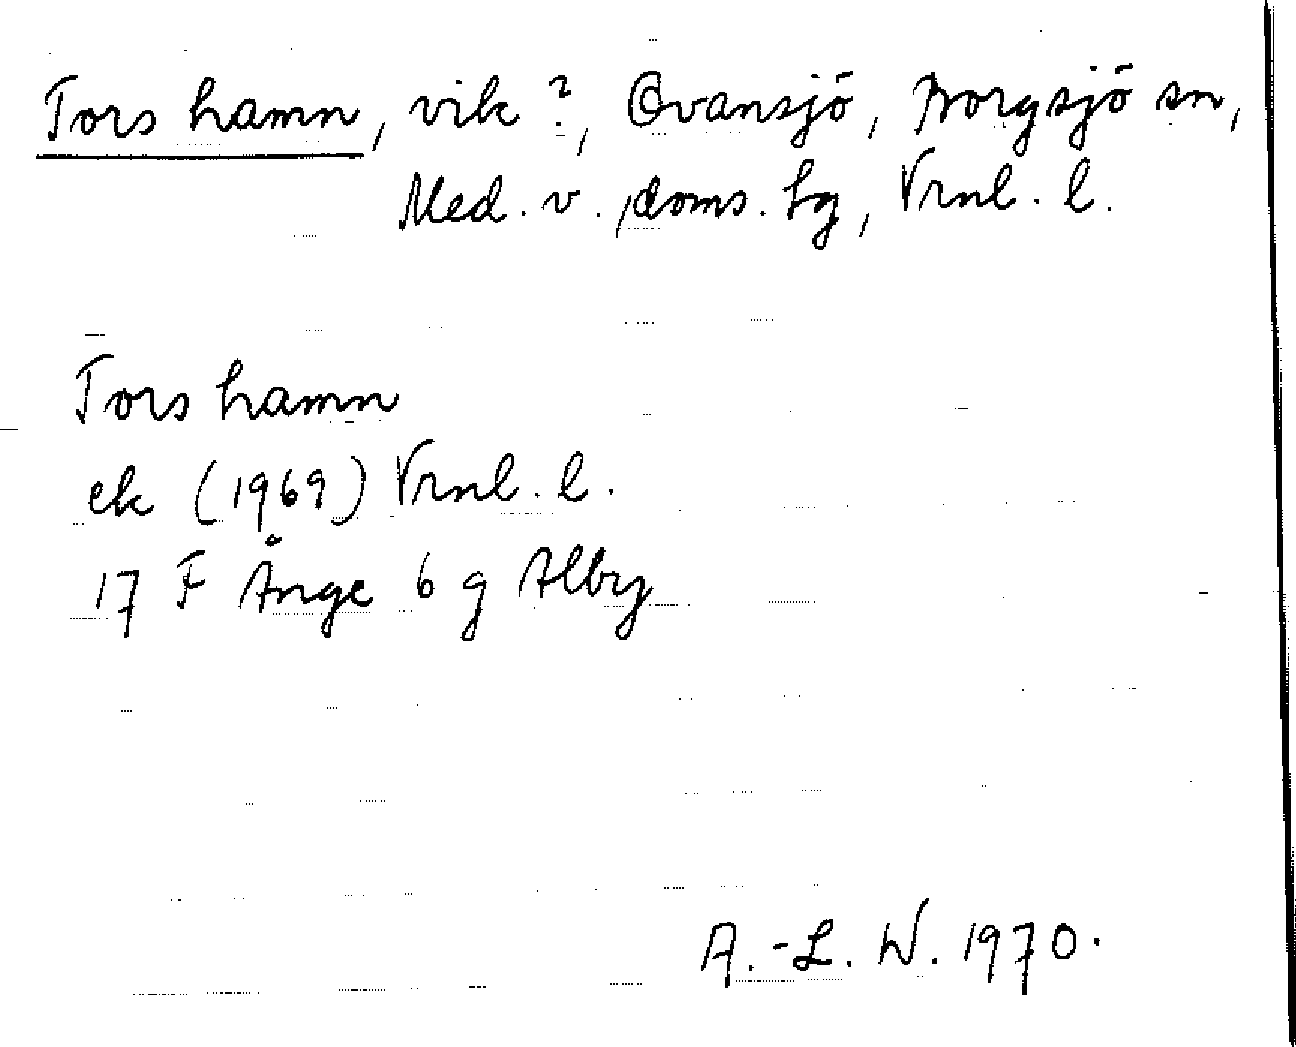 Tors hamn, vik?, Ovansjö, Borgsjö sn,
Med. v. doms. hg, Vrnl. l.
Tors hamn
ek (1969) Vrnl. l.
17 F Ånge 6 g Alby
A.-L. W. 1970.